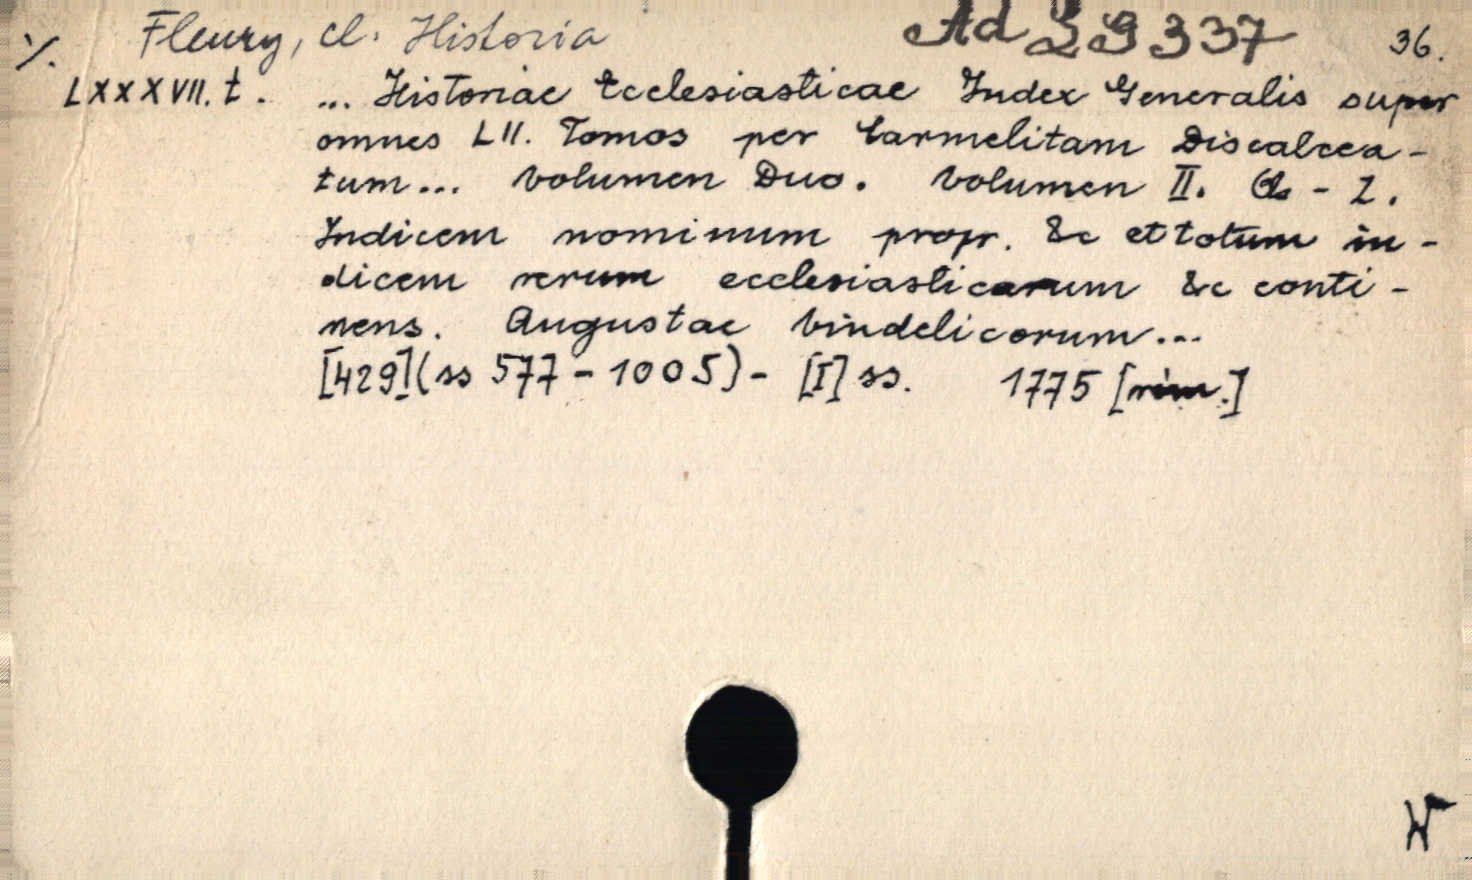 Fleury, Cl. Historia Ad 29337 36.
·/.
LXXXVII. t. ... Historiae Ecclesiasticae Index Generalis super
omnes LII. Tomos per Carmelitam Discalcea-
tum... Volumen Duo. Volumen II. Q - Z.
Indicem nominum propr. &c et totum in-
dicem rerum ecclesiasticarum &c conti-
nens. Augustae Vindelicorum...
[429] (ss 577 - 1005) - [I] ss. 1775 [rim.]
W